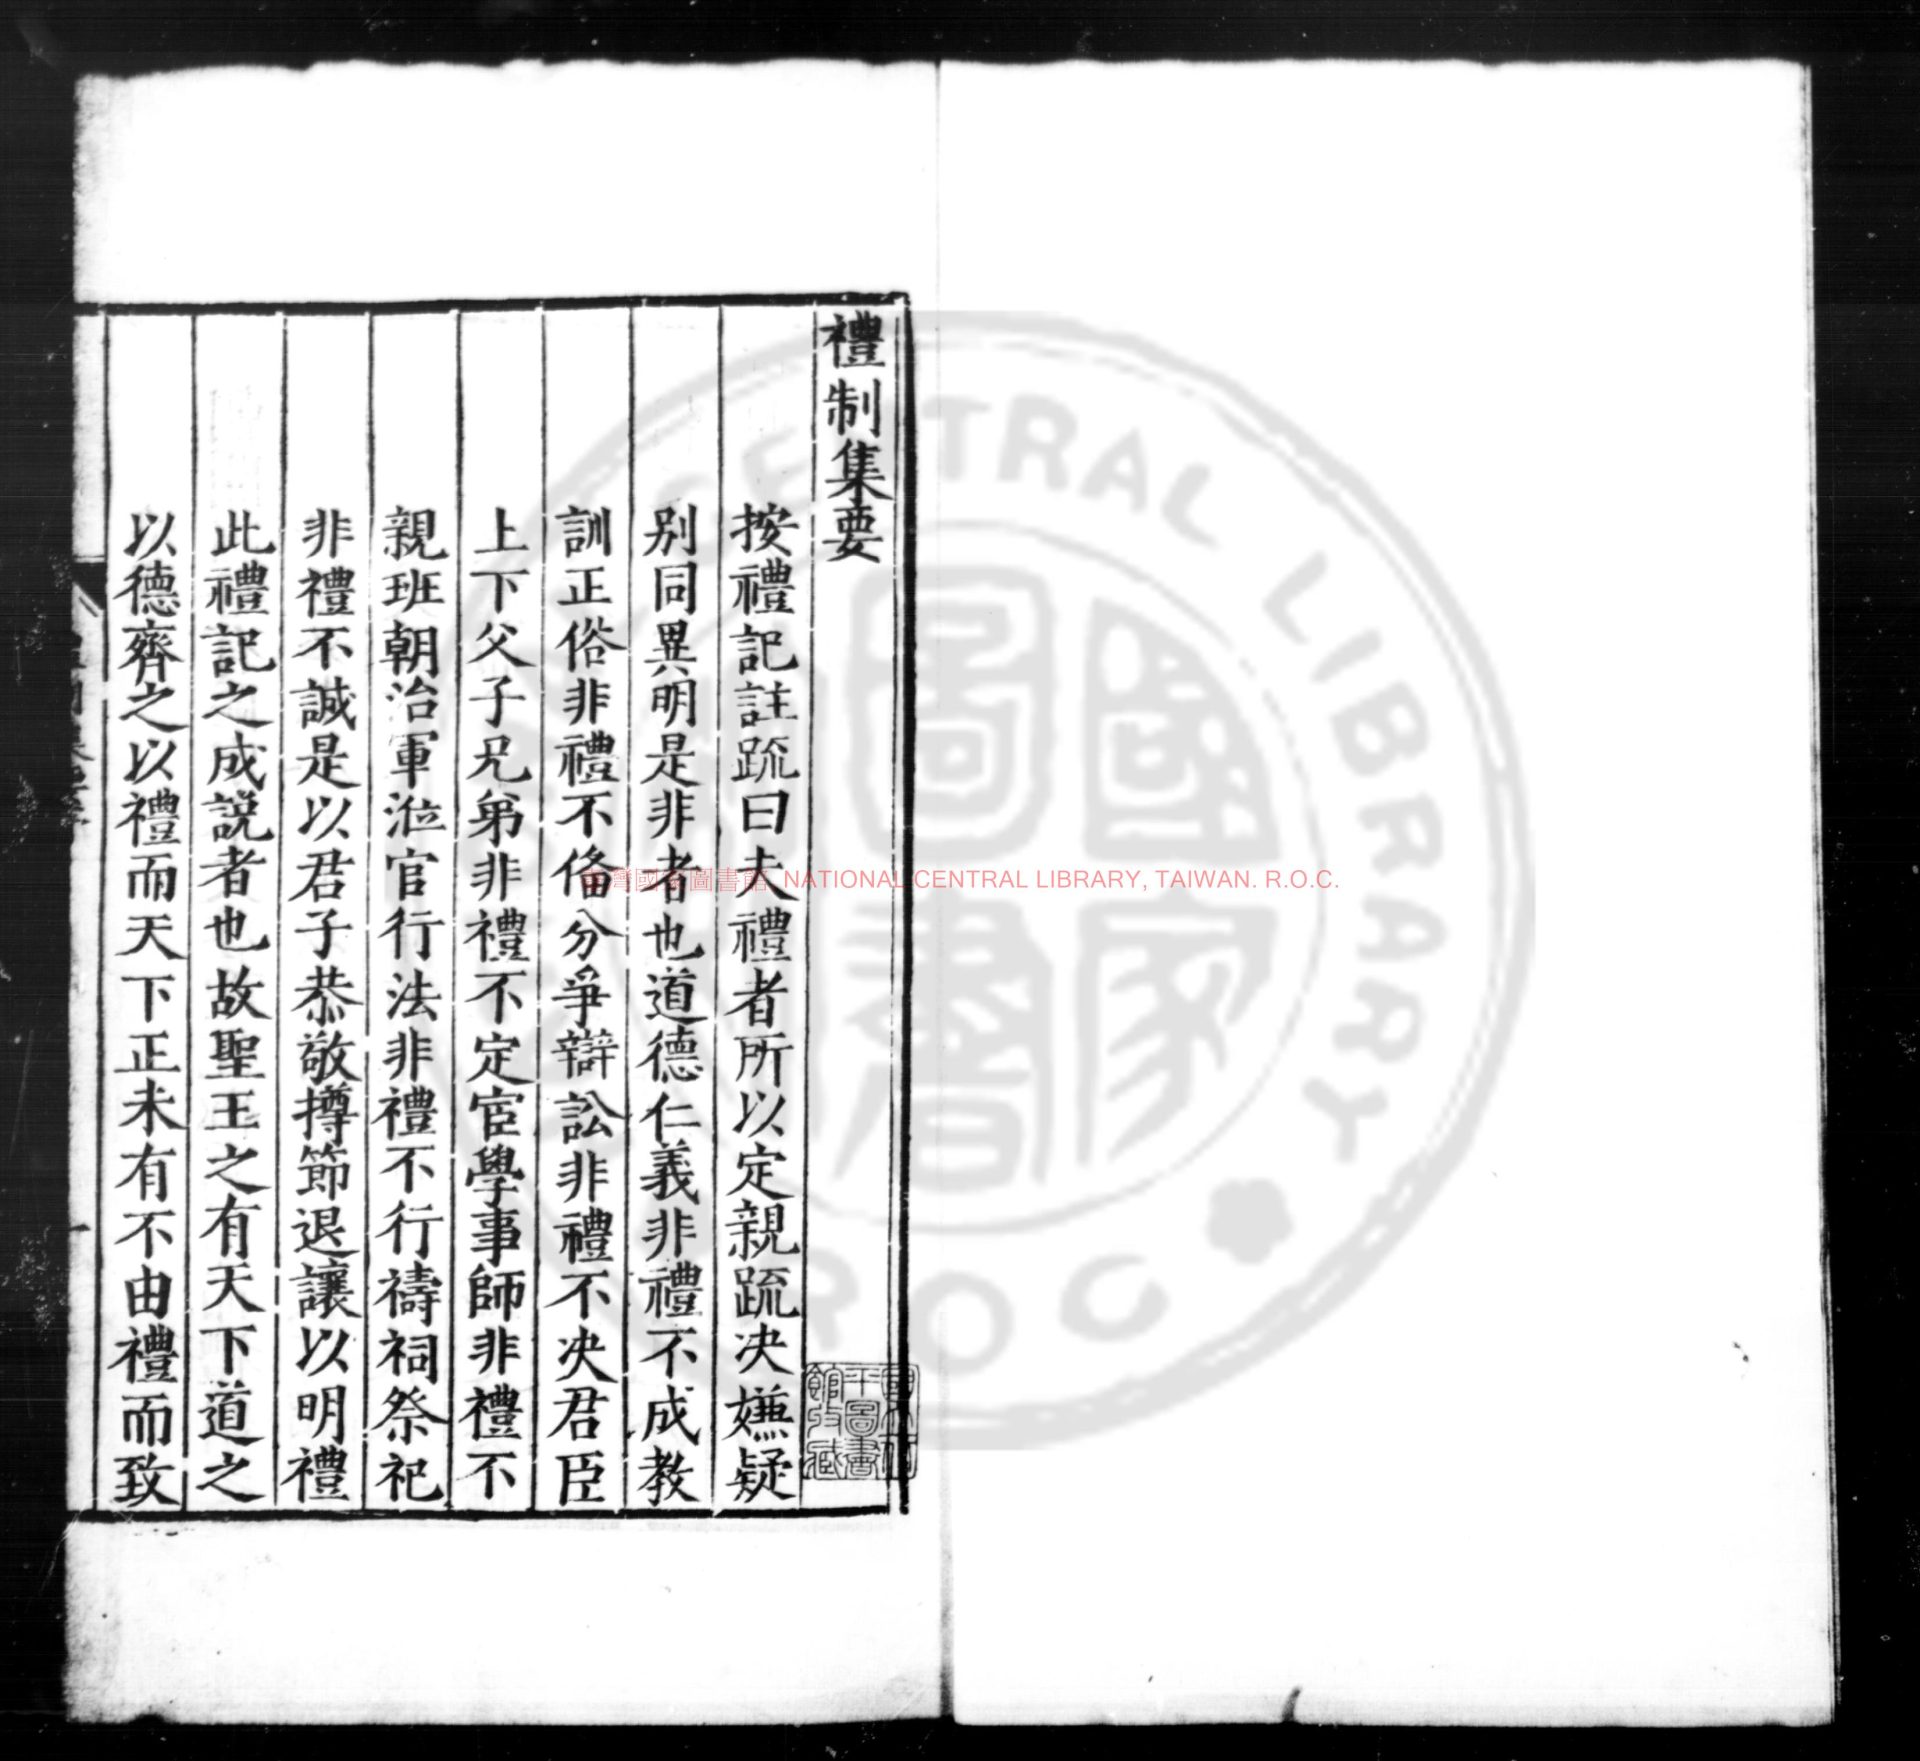 禮制集要
按禮記註疏曰夫禮者所以定親疏决嫌疑
别同異明是非者也道德仁義非禮不成教
訓正俗非禮不俻分爭辯訟非禮不决君臣
上下父子兄弟非禮不定宦學事師非禮不
親班朝治軍涖官行法非禮不行禱祠祭祀
非禮不誠是以君子恭敬撙節退讓以明禮
此禮記之成説者也故聖王之有天下道之
以德齊之以禮而天下正未有不由禮而致
國立北平圖書館收藏
臺灣國家圖書館 NATIONAL CENTRAL LIBRARY, TAIWAN. R.O.C.
CENTRAL LIBRARY
R.O.C
國家圖書